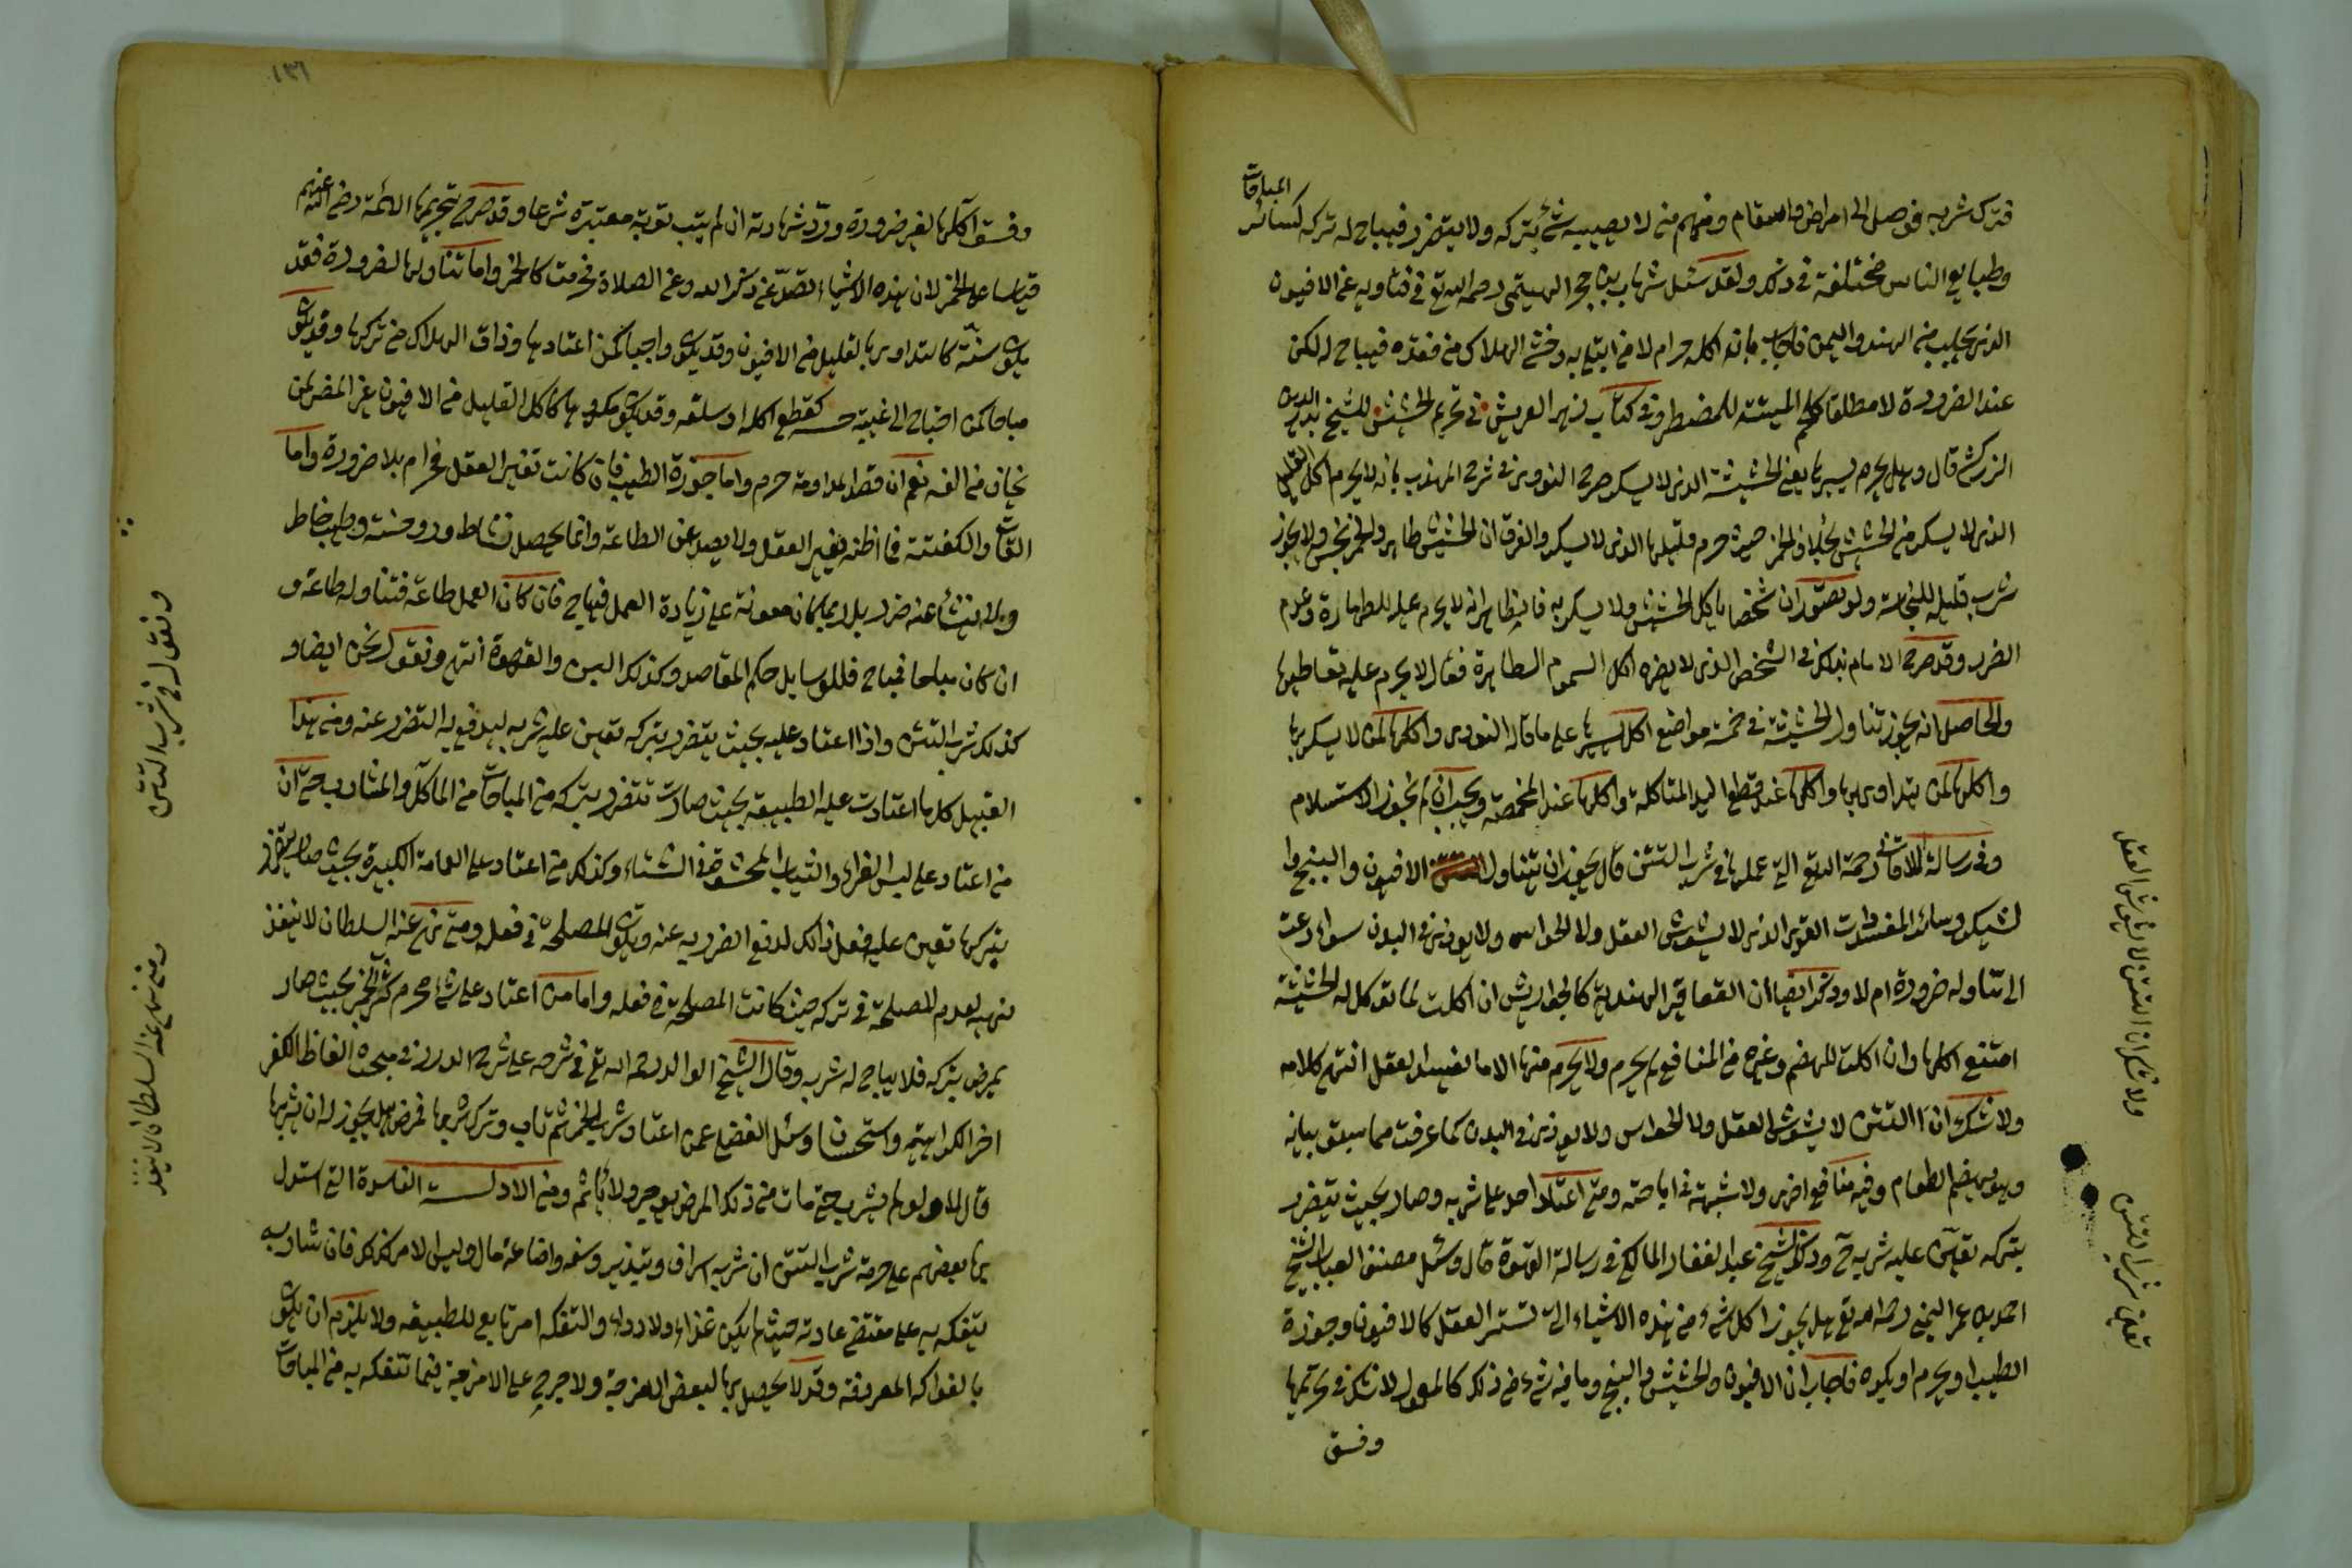 فترك شربه فوصل الى امراض واسقام ومنهم من لا يصيبه شئ بتركه ولا يتضرر فيباح له تركه كسائر المباحات
وطبايع الناس مختلفة في ذلك ولقد سئل شهاب بن حجر الهيتمي رحمه الله تع في فتاويه عن الافيون
الذي يجلب من الهند واليمن فاجاب بانه اكله حرام لا من ابتلى به وخشي الهلاك من فقده فيباح له لكن
عند الضرورة لا مطلقا كلحم الميتة للمضطر وفي كتاب زهر العريش في تحريم الحشيش للشيخ بدر الدين
الزركشي قال وهل يحرم يسيرها يعني الحشيشة الذي لا يسكر صرح النووي في شرح المهذب بانه لا يحرم اكل القليل
الذي لا يسكر من الحشيش بخلاف الخمر حيث حرم قليلها الذي لا يسكر والفرق ان الحشيش طاهر والخمر نجس ولا يجوز
شرب قليله للنجاسة ولو تصور ان شخصا ياكل الحشيش ولا يسكر به فالظاهر انه لا يحرم عليه للطهارة وعدم
الضرر وقد صرح الامام بذلك في الشخص الذي لا يضره اكل السموم الطاهرة فقال لا يحرم عليه تعاطيها
والحاصل انه يجوز تناول الحشيشة في خمسة مواضع اكل اليسير على ما قاله النووي واكلها لمن لا يسكر بها
واكلها لمن يتداوى بها واكلها عند قطع اليد المتاكلة واكلها عند المخمصة ويجب ان لم نجوز الاستسلام
وفي رسالة اللاقاني رحمه الله تع التي عملها في شرب التتن قال يجوز ان يتناول الافيون والبنج وا
لشيكران وسائر المفسدات القدر الذي لا يشوش العقل ولا الحواس ولا يوذي في البدن سواء دعت
الى تناوله ضرورة ام لا وذكر ايضا ان العقاقير الهندية كالجواريش ان اكلت لما تؤكل له الحشيشة
امتنع اكلها وان اكلت للهضم وغيره من المنافع لم يحرم ولا يحرم منها الا ما افسد العقل انتهى كلامه
ولا شك ان التتن لا يشوش العقل ولا الحواس ولا يوذي في البدن كما عرفت مما سبق بيانه
وهو يهضم الطعام وفيه منافع اخرى ولا شبهة في اباحته ومتى اعتاد احد على شربه وصار بحيث يتضرر
بتركه تعين عليه شربه ح وذكر الشيخ عبد الغفار المالكي في رسالة القهوة قال وسئل مصنف العباب الشيخ
احمد بن عمر اليمني رحمه الله تع هل يجوز اكل شئ من هذه الاشياء التي تستر العقل كالافيون وجوزة
الطيب او يحرم او يكره فاجاب ان الافيون والحشيش والبنج وما فيه شئ من ذلك كالمعمول لا شك في تحريمها
وفسق
ولا شك ان التتن لا يشوش العقل
تعين شرب التتن
١٣١
وفسق آكلها لغير ضرورة وردّ شهادته ان لم يتب توبة معتبرة شرعا وقد صرح بتحريمها الائمة رضي الله عنهم
قياسا على الخمر لان هذه الاشياء تصدّ عن ذكر الله وعن الصلاة فحرمت كالخمر واما تناولها لضرورة فقد
يكون سنّة كالتداوي بالقليل من الافيون وقد يكون واجبا كمن اعتادها وخاف الهلاك من تركها وقد يكون
مباحا كمن احتاج الى غيبة حسه كقطع اكله او سلعة وقد يكون مكروها كاكل القليل من الافيون غير المضر لمن
يخاف من الفه نعم ان قصد المداومة حرم واما جوزة الطيب فان كانت تغير العقل فحرام بلا ضرورة واما
القات والكفتة فما اظنه يغير العقل ولا يصد عن الطاعة وانما يحصل نشاط وروحنة وطيب خاطر
ولا ينشأ عنه ضرر بل ربما كان معونة على زيادة العمل فيباح فان كان العمل طاعة فتناوله طاعة و
ان كان مباحا فمباح فللوسايل حكم المقاصد وكذلك البن والقهوة انتهى ونقول نحن ايضا و
كذلك شرب التتن واذا اعتاد عليه بحيث يتضرر بتركه تعين عليه شربه ليدفع به التضرر عنه ومن هذا
القبيل كلما اعتادت عليه الطبيعة بحيث صارت تتضرر بتركه من المباحات من المآكل والمشارب حتى ان
من اعتاد على لبس الفراء والثياب المحشوة في الشتاء وكذلك من اعتاد على العمامة الكبيرة بحيث صار يتضرر
بتركها تعين عليه فعل ذلك لدفع الضرر به عنه وتكون المصلحة في فعله ومتى نهى عنه السلطان لا ينفذ
نهيه لعدم المصلحة في تركه حيث كانت المصلحة في فعله واما من اعتاد على شئ محرم كشرب الخمر بحيث صار
يمرض بتركه فلا يباح له شربه وقال الشيخ الوالد رحمه الله تع في شرحه على شرح الدرر في مبحث الفاظ الكفر
اخر الكراهية والاستحسان وسئل الفضلي عمن اعتاد شرب الخمر ثم تاب وترك شربها فمرض هل يجوز له ان يشربها
قال لا ولو لم يشرب حتى مات من ذلك المرض يوجر ولا يأثم ومن الادلة الفاسدة التي استدل
بها بعضهم على حرمة شرب التتن ان شربه اسراف وتبذير وسفه واضاعة مال وليس الامر كذلك فان شاربه
يتفكه به على مقتضى عادته حيث لم يكن غذاء ولا دواء والتفكه امر تابع للطبيعة ولا يلزم ان يكون
بالفواكه المعروفة وقد لا يحصل بها لبعض الامزجة ولا حرج على الامزجة فيما تتفكه به من المباحات
ونقول في شرب التتن
ومتى نهى عنه السلطان لا ينفذ